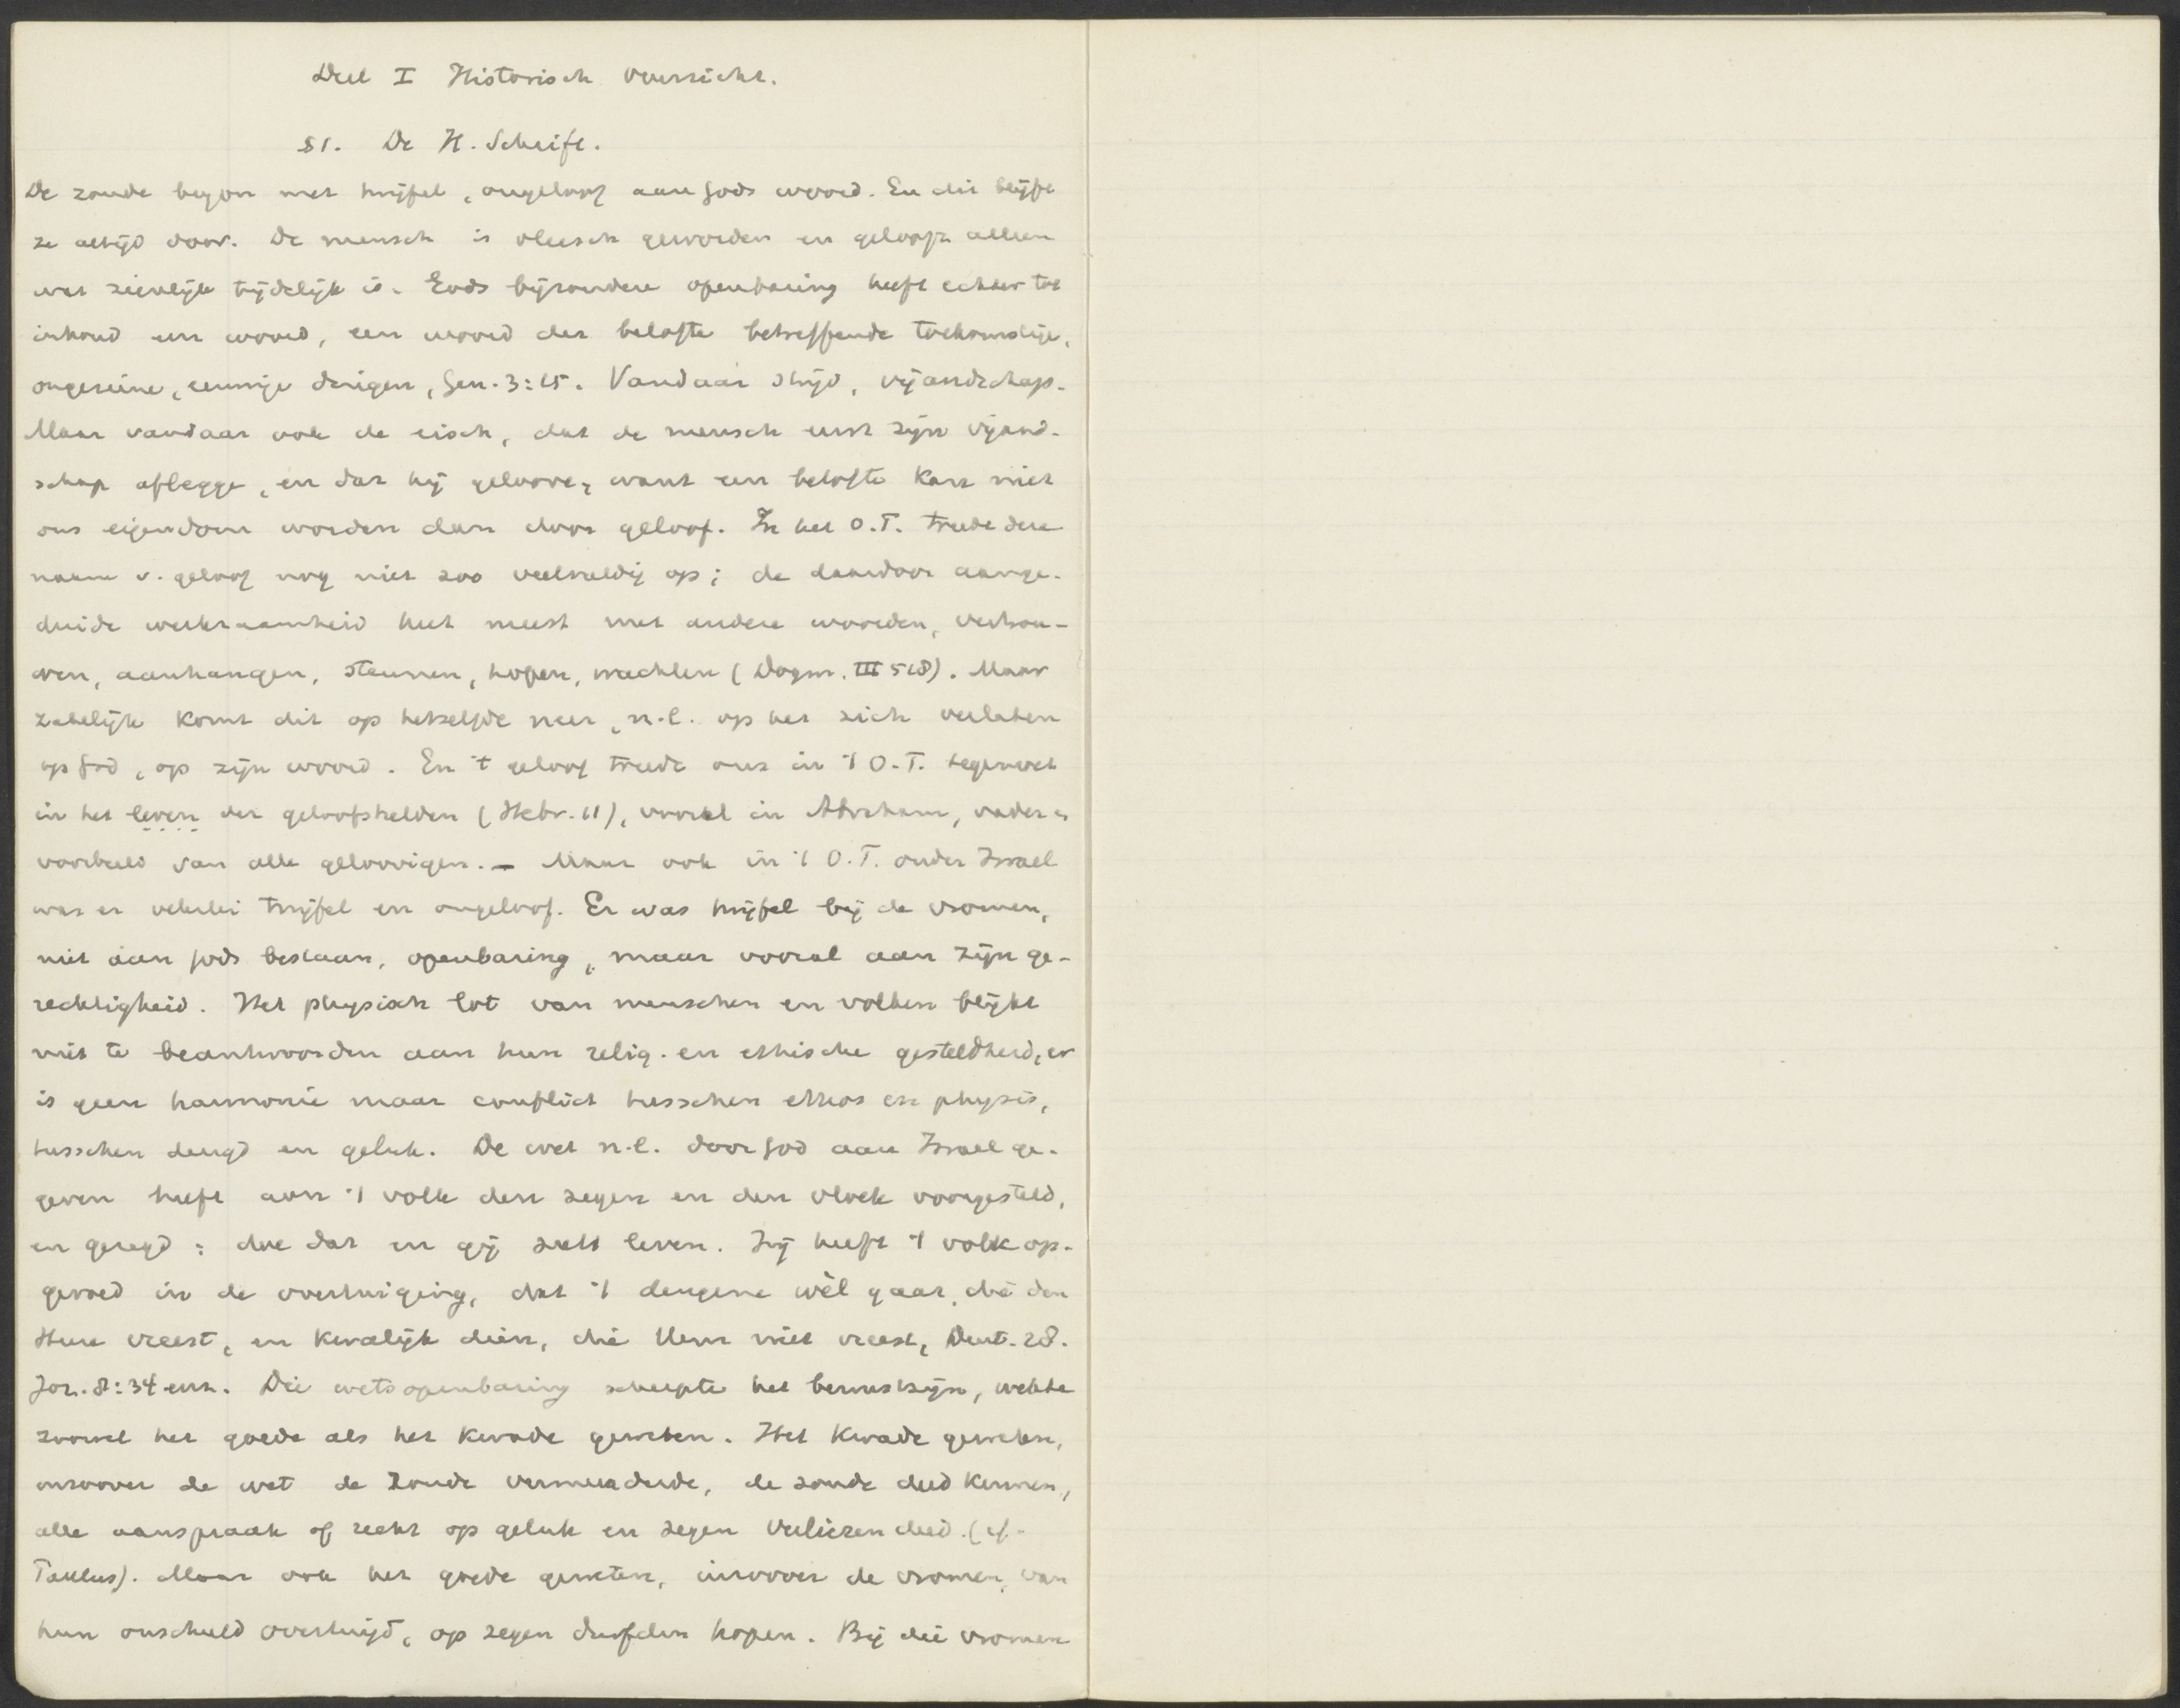 Deel I Historisch Overzicht.
§1. De H. Schrift.
De zonde begon met twijfel, ongeloof aan Gods woord. En dit blijft
ze altijd door. De mensch is vleesch geworden en gelooft alleen
wat zienlijk tijdelijk is. Gods bijzondere openbaring heeft echter tot
inhoud een woord, een woord der belofte betreffende toekomstige,
ongeziene, eeuwige dingen, Gen. 3:15. Vandaar strijd, vijandschap.
Maar vandaar ook de eisch, dat de mensch eerst zijn vijand-
schap aflegge, en dat hij geloove, want een belofte kan niet
ons eigendom worden dan door geloof. In het O.T. treedt deze
naam v. geloof nog niet zoo veelvuldig op; de daardoor aange-
duide werkzaamheid heet meest met andere woorden, vertrou-
wen, aanhangen, steunen, hopen, wachten (Dogm. III 518). Maar
zakelijk komt dit op hetzelfde neer, n.l. op het zich verlaten
op God, op zijn woord. En 't geloof treedt ons in 't O.T. tegemoet
in het leven der geloofshelden (Hebr. 11), vooral in Abraham, vader en
voorbeeld van alle geloovigen. — Maar ook in 't O.T. onder Israel
was er velerlei twijfel en ongeloof. Er was twijfel bij de vromen,
niet aan Gods bestaan, openbaring, maar vooral aan zijn ge-
rechtigheid. Het physisch lot van menschen en volken blijkt
niet te beantwoorden aan hun relig. en ethische gesteldheid, er
is geen harmonie maar conflict tusschen ethos en physis,
tusschen deugd en geluk. De wet n.l. door God aan Israel ge-
geven heeft aan 't volk den zegen en den vloek voorgesteld,
en gezegd: doe dat en gij zult leven. Zij heeft 't volk op-
gevoed in de overtuiging, dat 't dengene wèl gaat, die den
Heere vreest, en kwalijk dien, die Hem niet vreest, Deut. 28.
Joz. 8:34 enz. Die wetsopenbaring scherpte het bewustzijn, wekte
zoowel het goede als het kwade geweten. Het kwade geweten,
inzoover de wet de zonde vermeerderde, de zonde deed kennen,
alle aanspraak of recht op geluk en zegen verliezen deed. (cf.
Paulus). Maar ook het goede geweten, inzoover de vromen, van
hun onschuld overtuigd, op zegen durfden hopen. Bij die vromen